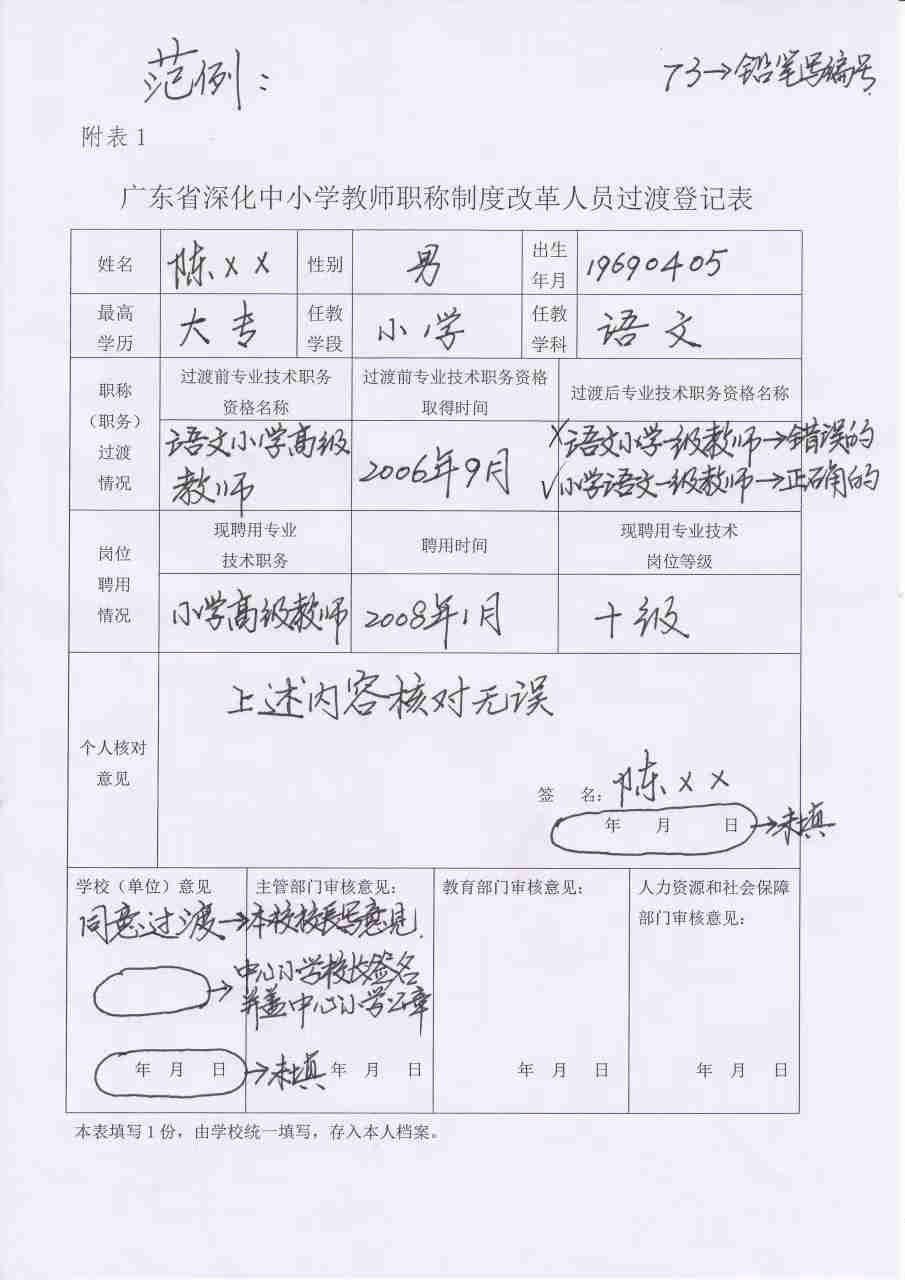 范例：
73→铅笔写编号.
附表1
广东省深化中小学教师职称制度改革人员过渡登记表
姓名 陈×× 性别 男 出生年月 19690405
最高学历 大专 任教学段 小学 任教学科 语文
职称（职务）过渡情况
过渡前专业技术职务资格名称 过渡前专业技术职务资格取得时间 过渡后专业技术职务资格名称
语文小学高级教师 2006年9月
×语文小学一级教师→错误的
√小学语文一级教师→正确的
岗位聘用情况
现聘用专业技术职务 聘用时间 现聘用专业技术岗位等级
小学高级教师 2008年1月 十级
个人核对意见
上述内容核对无误
签 名：陈××
年 月 日→未填
学校（单位）意见 主管部门审核意见： 教育部门审核意见： 人力资源和社会保障部门审核意见：
同意过渡→本校校长写意见.
→中心小学校长签名
并盖中心小学公章
年 月 日→未填 年 月 日 年 月 日 年 月 日
本表填写1份，由学校统一填写，存入本人档案。